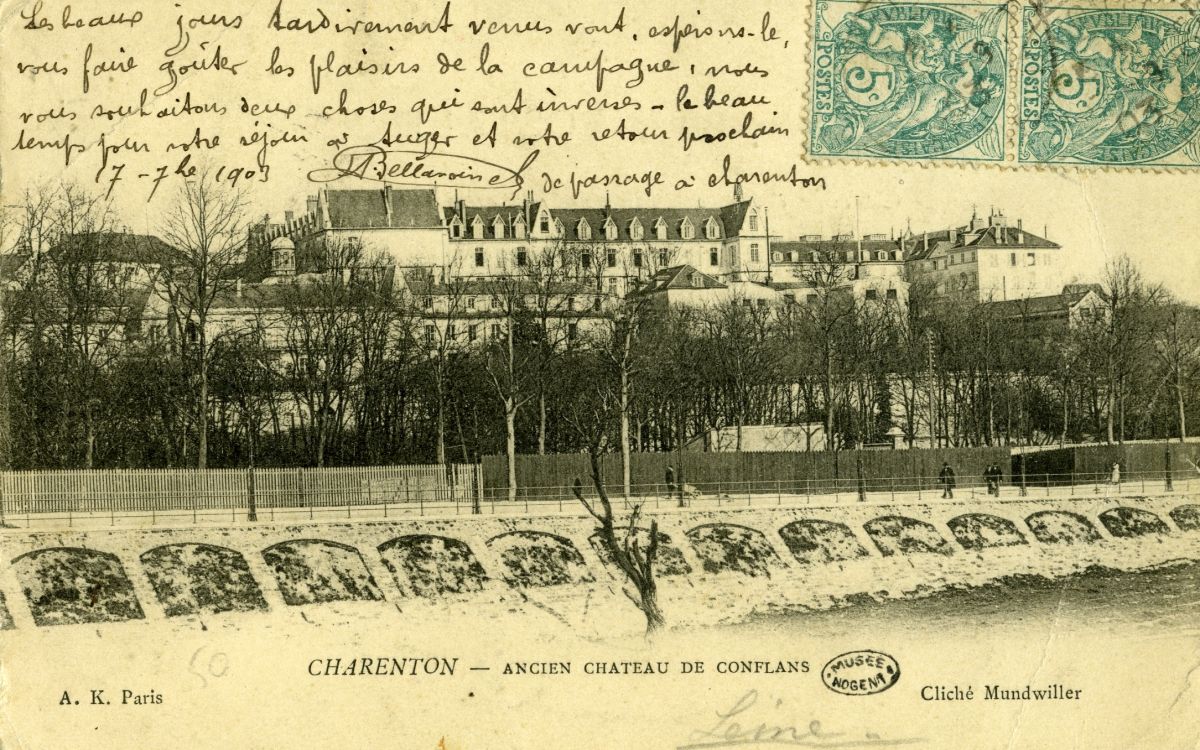 Les beaux jours tardivement venus vont, espérons-le,
vous faire goûter les plaisirs de la campagne, nous
vous souhaitons deux choses qui sont inverses - le beau
temps pour votre séjour à Auger et votre retour prochain
7 - 7bre 1903 Bellavoine de passage à charenton
POSTES 5c
POSTES 5c
CHARENTON — ANCIEN CHATEAU DE CONFLANS
MUSÉE NOGENT
A. K. Paris
Cliché Mundwiller
50
Seine